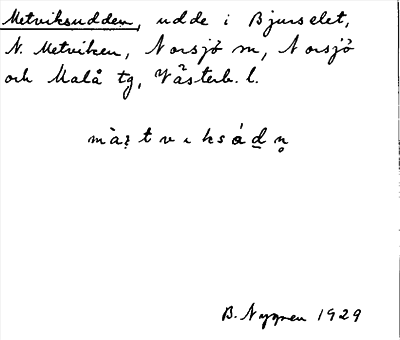 Metviksudden, udde i Bjurselet,
N. Metviken, Norsjö sn, Norsjö
och Malå tg, Västerb. l.
B. Nygren 1929